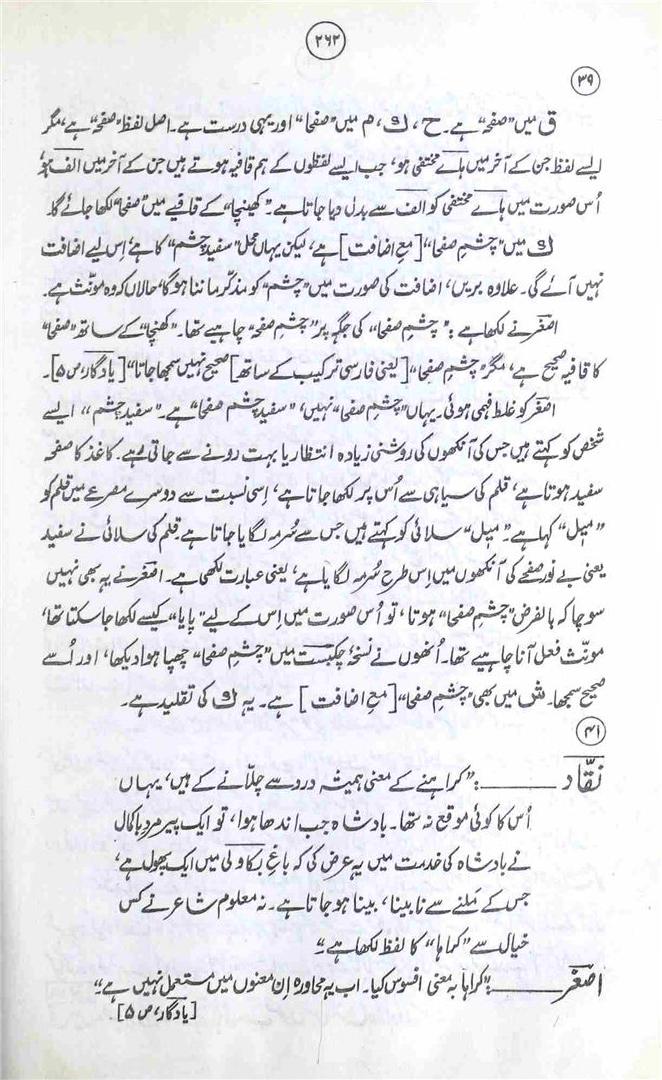 ۲۶۲
۳۹
ق میں "صفحہ" ہے۔ ح، ك، م میں "صفحا" اور یہی درست ہے۔ اصل لفظ "صفحہ" ہے، مگر
ایسے لفظ جن کے آخر میں ہاے مختفی ہو، جب ایسے لفظوں کے ہم قافیہ ہوتے ہیں جن کے آخر میں الف ہو،
اُس صورت میں ہاے مختفی کو الف سے بدل دیا جاتا ہے۔ "کھینچا" کے قافیے میں "صفحا" لکھا جائے گا۔
ك میں "چشمِ صفحا" [مع اضافت] ہے، لیکن یہاں محل "سفید چشم" کا ہے، اِس لیے اضافت
نہیں آئے گی۔ علاوہ بریں، اضافت کی صورت میں "چشم" کو مذکّر ماننا ہوگا، حالاں کہ وہ مونّث ہے۔
اصغر نے لکھا ہے: "چشمِ صفحا" کی جگہ پر "چشمِ صفحہ" چاہیے تھا۔ "کھنچا" کے ساتھ "صفحا"
کا قافیہ صحیح ہے، مگر "چشمِ صفحا" [یعنی فارسی ترکیب کے ساتھ] صحیح نہیں سمجھا جاتا" [یادگار، ص ۵]۔
اصغر کو غلط فہمی ہوئی۔ یہاں "چشمِ صفحا" نہیں، "سفید چشم صفحا" ہے۔ "سفید چشم" ایسے
شخص کو کہتے ہیں جس کی آنکھوں کی روشنی زیادہ انتظار یا بہت رونے سے جاتی رہے۔ کاغذ کا صفحہ
سفید ہوتا ہے، قلم کی سیاہی سے اُس پر لکھا جاتا ہے، اِسی نسبت سے دوسرے مصرعے میں قلم کو
"میل" کہا ہے۔ "میل" سلائی کو کہتے ہیں جس سے سُرمہ لگایا جاتا ہے۔ قلم کی سلائی نے سفید
یعنی بے نور صفحے کی آنکھوں میں اِس طرح سُرمہ لگایا ہے، یعنی عبارت لکھی ہے۔ اصغر نے یہ بھی نہیں
سوچا کہ بالفرض "چشمِ صفحا" ہوتا، تو اُس صورت میں اِس کے لیے "پایا" کیسے لکھا جا سکتا تھا،
مونّث فعل آنا چاہیے تھا۔ اُنھوں نے نسخۂ چکبست میں "چشمِ صفحا" چھپا ہوا دیکھا، اور اُسے
صحیح سمجھا۔ ش میں بھی "چشمِ صفحا" [مع اضافت] ہے۔ یہ ك کی تقلید ہے۔
۴۱
نقّاد ــــــ: "کراہنے کے معنی ہمیشہ درد سے چلّانے کے ہیں، یہاں
اُس کا کوئی موقع نہ تھا۔ بادشاہ جب اندھا ہوا، تو ایک پیر مردِ باکمال
نے بادشاہ کی خدمت میں یہ عرض کی کہ باغِ بکاولی میں ایک پھول ہے،
جس کے مَلنے سے نابینا، بینا ہو جاتا ہے۔ نہ معلوم شاعر نے کس
خیال سے "کراہا" کا لفظ لکھا ہے"
اصغر ــــــ: "کراہا بہ معنی افسوس کیا۔ اب یہ محاورہ اِن معنوں میں مستعمل نہیں ہے"
[یادگار، ص ۵]۔